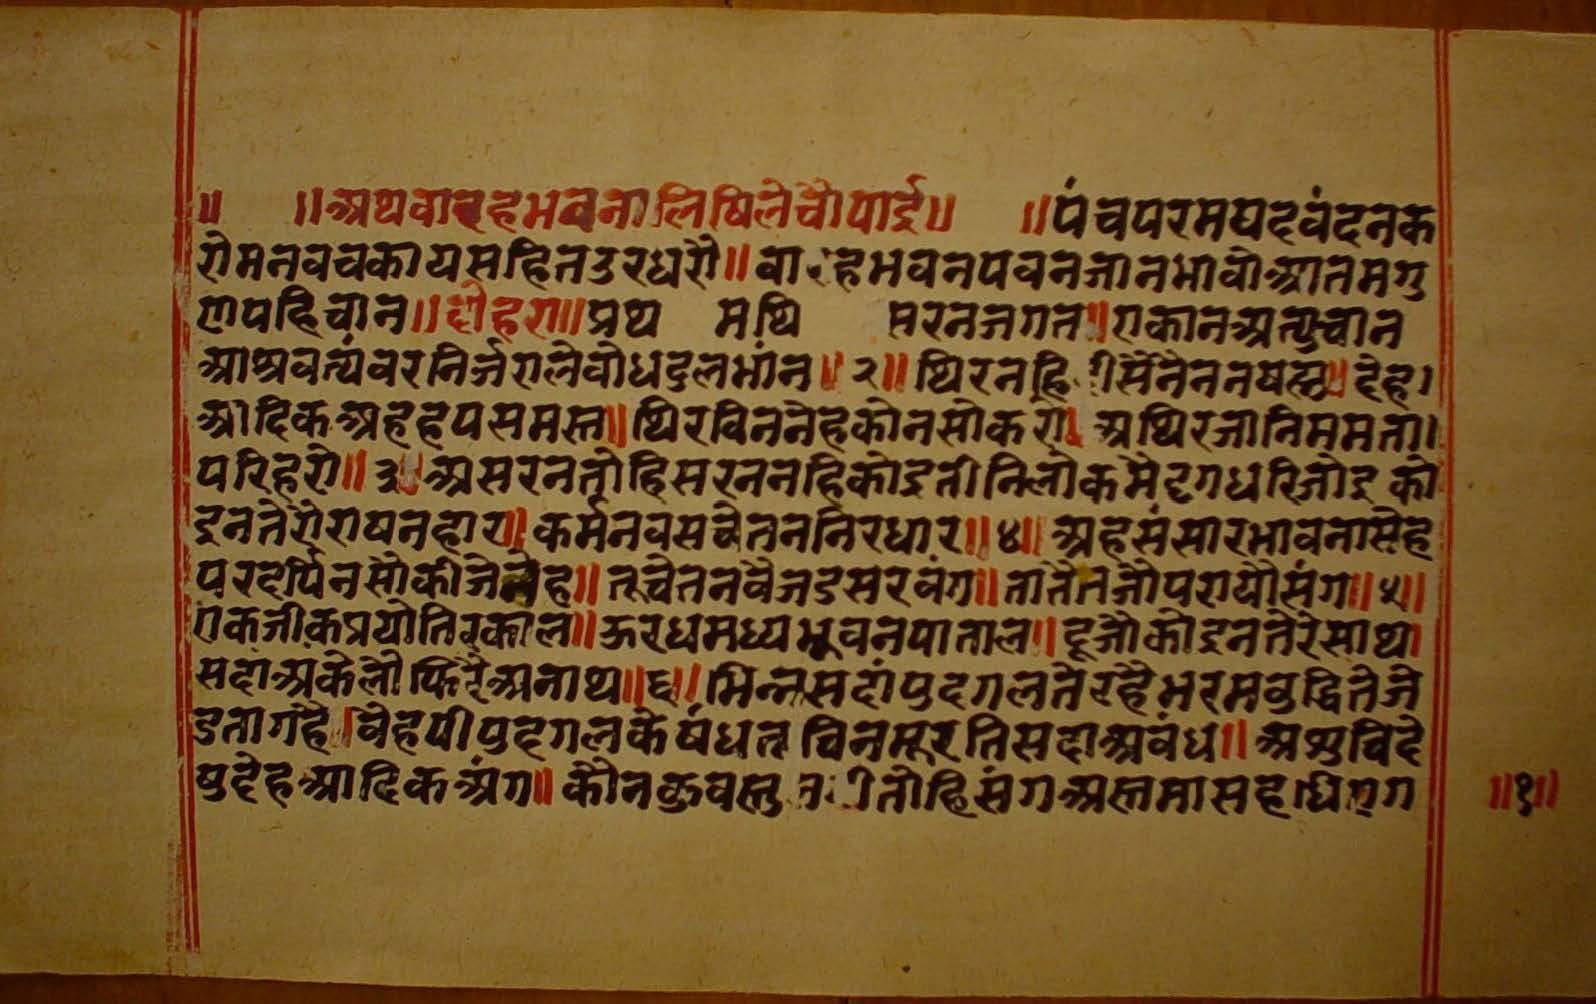 ॥ ॥अथवारहभवनालिषिलेचौपाई॥ ॥पंचपरमपदवंदनक
रोमनवचकायसहितउरधरौ॥वारहभवनपवनजानभावोआतमगु
णपहिचान॥दोहरा॥प्रथ मथि सरनजगत॥एकानअत्युचान
आश्रवत्संवरनिर्जरालेवोधदुलभांन॥२॥थिरनहि सैनैननषस्त॥देहा
आदिकअहहपसमस्त॥थिरविननेहकोनसोकरो।अथिरजानिममता।
परिहरो॥३॥असरनतोहिसरननहिकोइतीनिलोकमैदृगधरिजोइको
इनतेरोराषनहार॥कर्मनवसचेतननिरधार॥४॥अहसंसारभावनासेह
परदर्पिनसौकीजेनेह॥तूचेतनवैजडसरवंग॥तातैतजौपरायौसंग॥५॥
एकजीकप्रयोतिरकाल॥ऊरधमध्यभुवनपाताल॥दूजौकोइनतेरेसाथ।
सदांअकेलौफिरैअनाथ॥६॥भिन्नसदांपुदगलतेरहैभरमवुद्धितैजे
डतागहै।वेहपीपुदगलकेषंधत चिनमूरतिसदाअवंध॥अशुविदे
षुदेहआदिकअंग॥कौनकुवस्तु तोहिसंगअस्तमासह
॥१॥